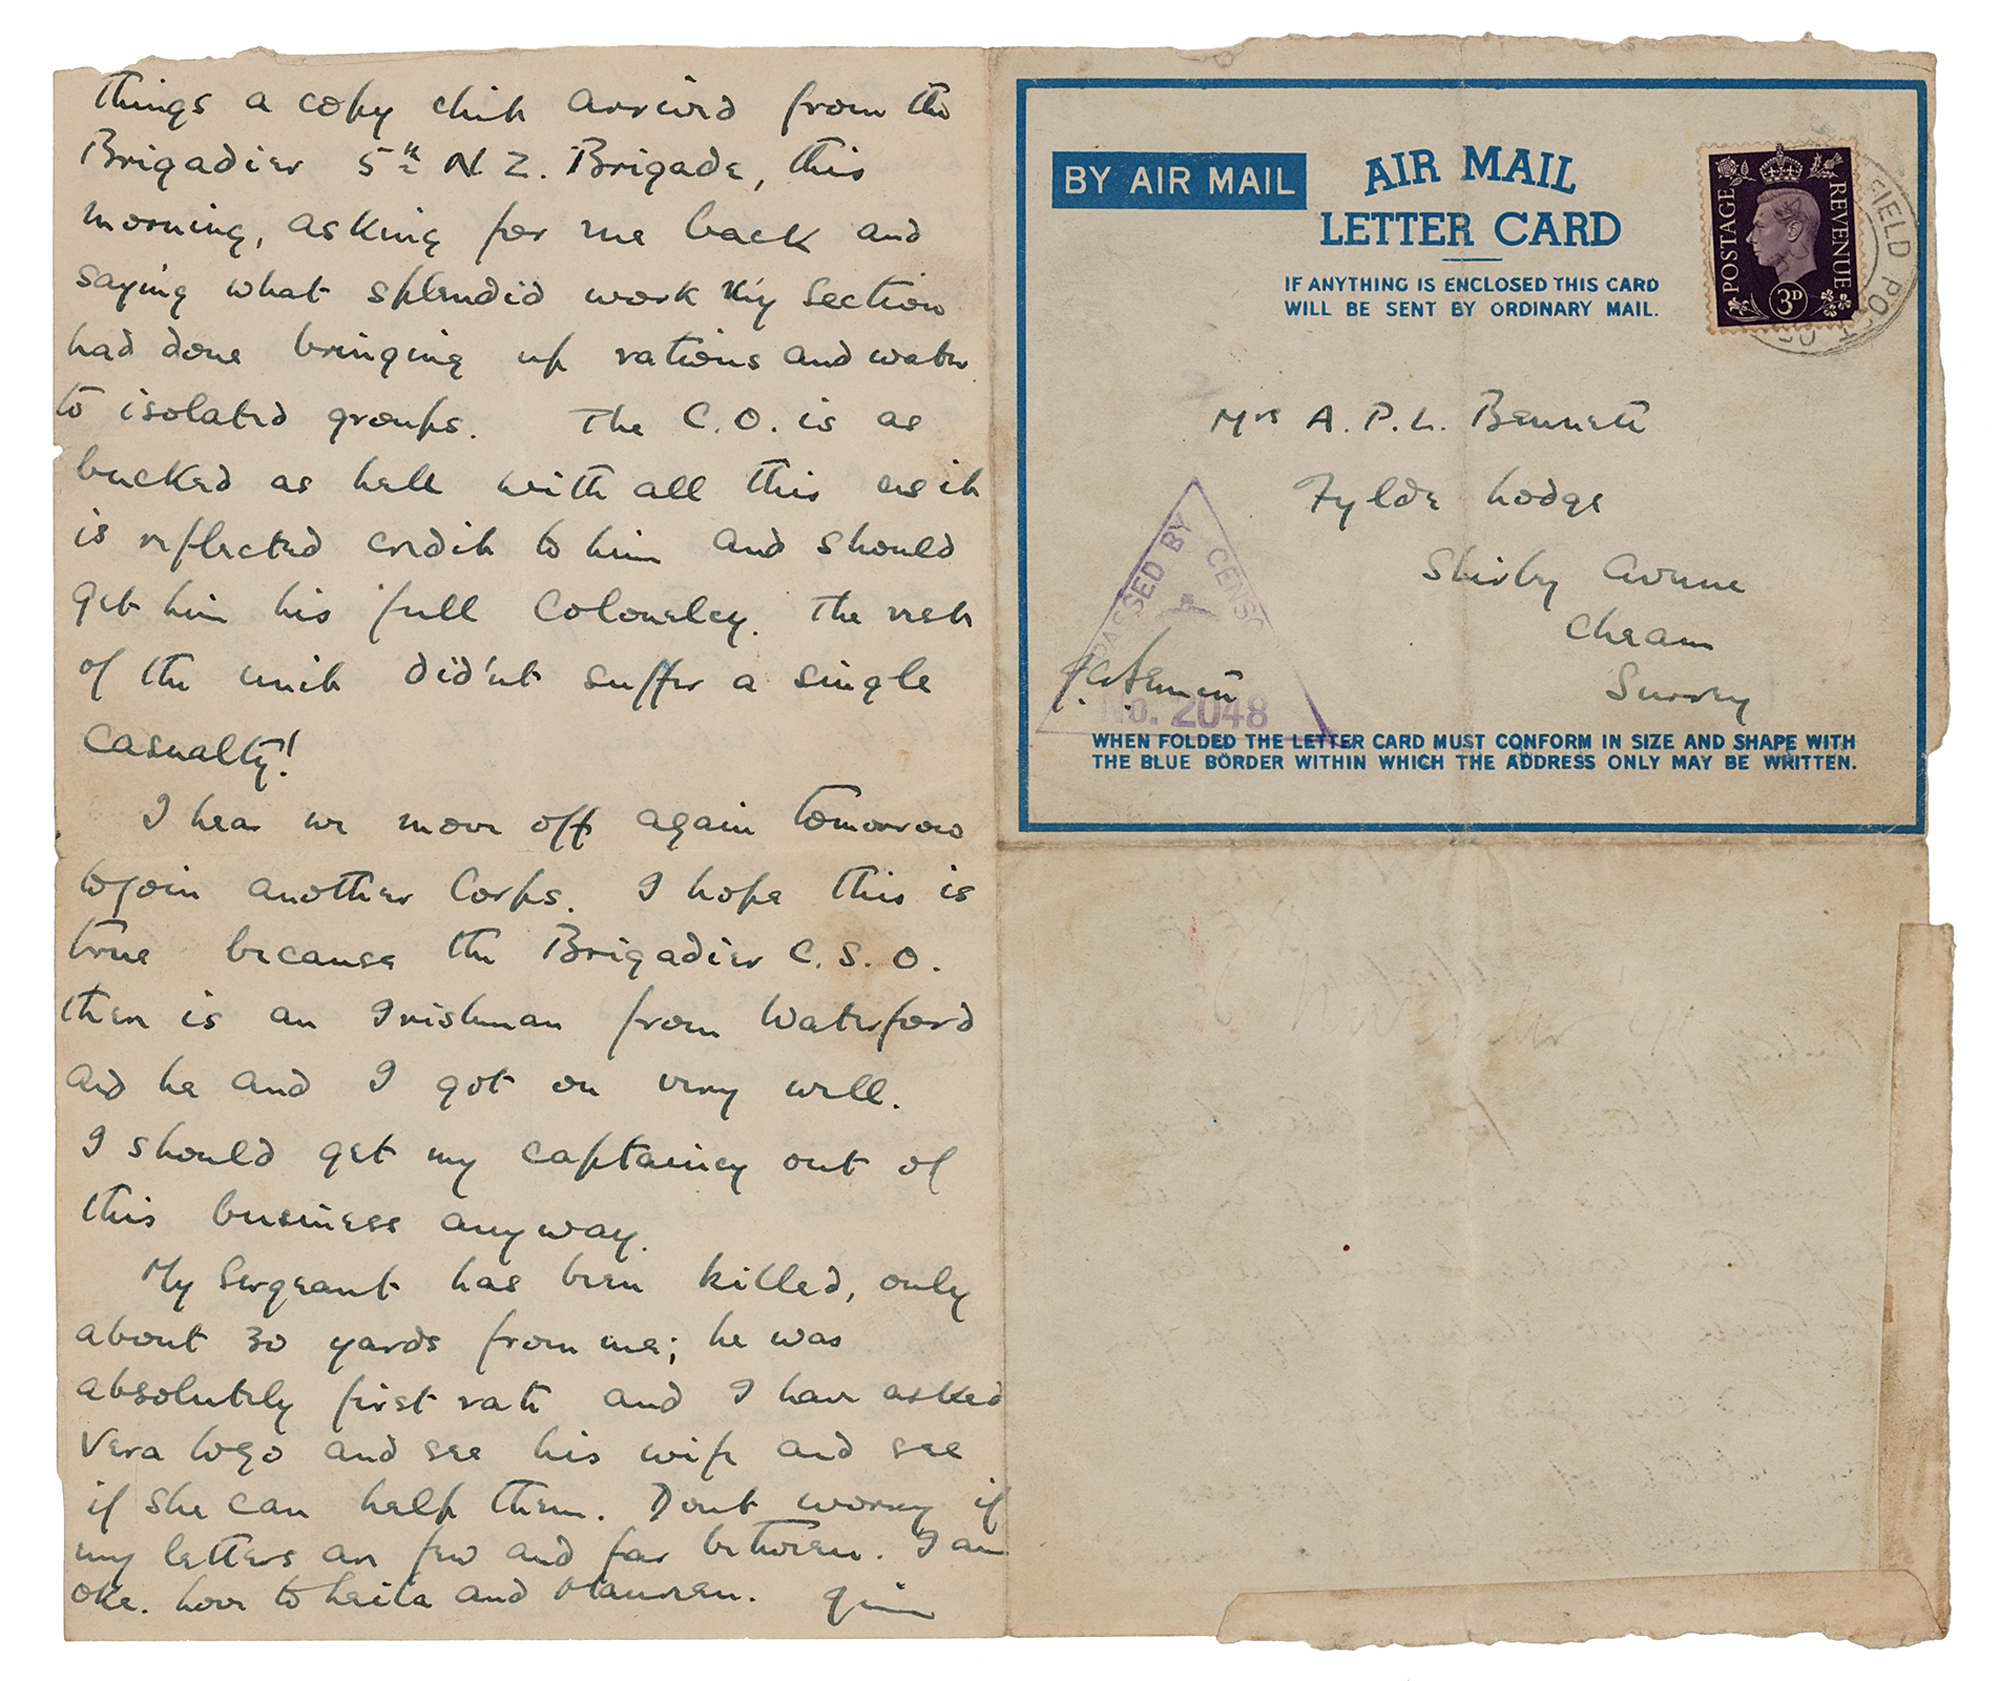 things a copy chit arrived from the
Brigadier 5th N Z. Brigade, this
morning, asking for me back and
saying what splendid work my Section
had done bringing up rations and water
to isolated groups. The C.O. is as
bucked as hell with all this as it
is reflected credit to him and should
get him his full Colonelcy. The rest
of the unit did'nt suffer a single
casualty!
I hear we move off again tomorrow
to join another Corps. I hope this is
true because the Brigadier C.S.O.
there is an Irishman from Waterford
and he and I got on very well.
I should get my captaincy out of
this business anyway.
My Sergeant has been killed, only
about 30 yards from me; he was
absolutely first rate and I have asked
Vera to go and see his wife and see
if she can help them. Dont worry if
my letters are few and far between. I am
oke. Love to Leila and Maureen. Jim
BY AIR MAIL
AIR MAIL
LETTER CARD
IF ANYTHING IS ENCLOSED THIS CARD
WILL BE SENT BY ORDINARY MAIL.
POSTAGE REVENUE
3D
FIELD POST
Mrs A. P. L. Bennett
Fylde Lodge
Shirley Avenue
Cheam
Surrey
PASSED BY CENSOR
No. 2048
WHEN FOLDED THE LETTER CARD MUST CONFORM IN SIZE AND SHAPE WITH
THE BLUE BORDER WITHIN WHICH THE ADDRESS ONLY MAY BE WRITTEN.